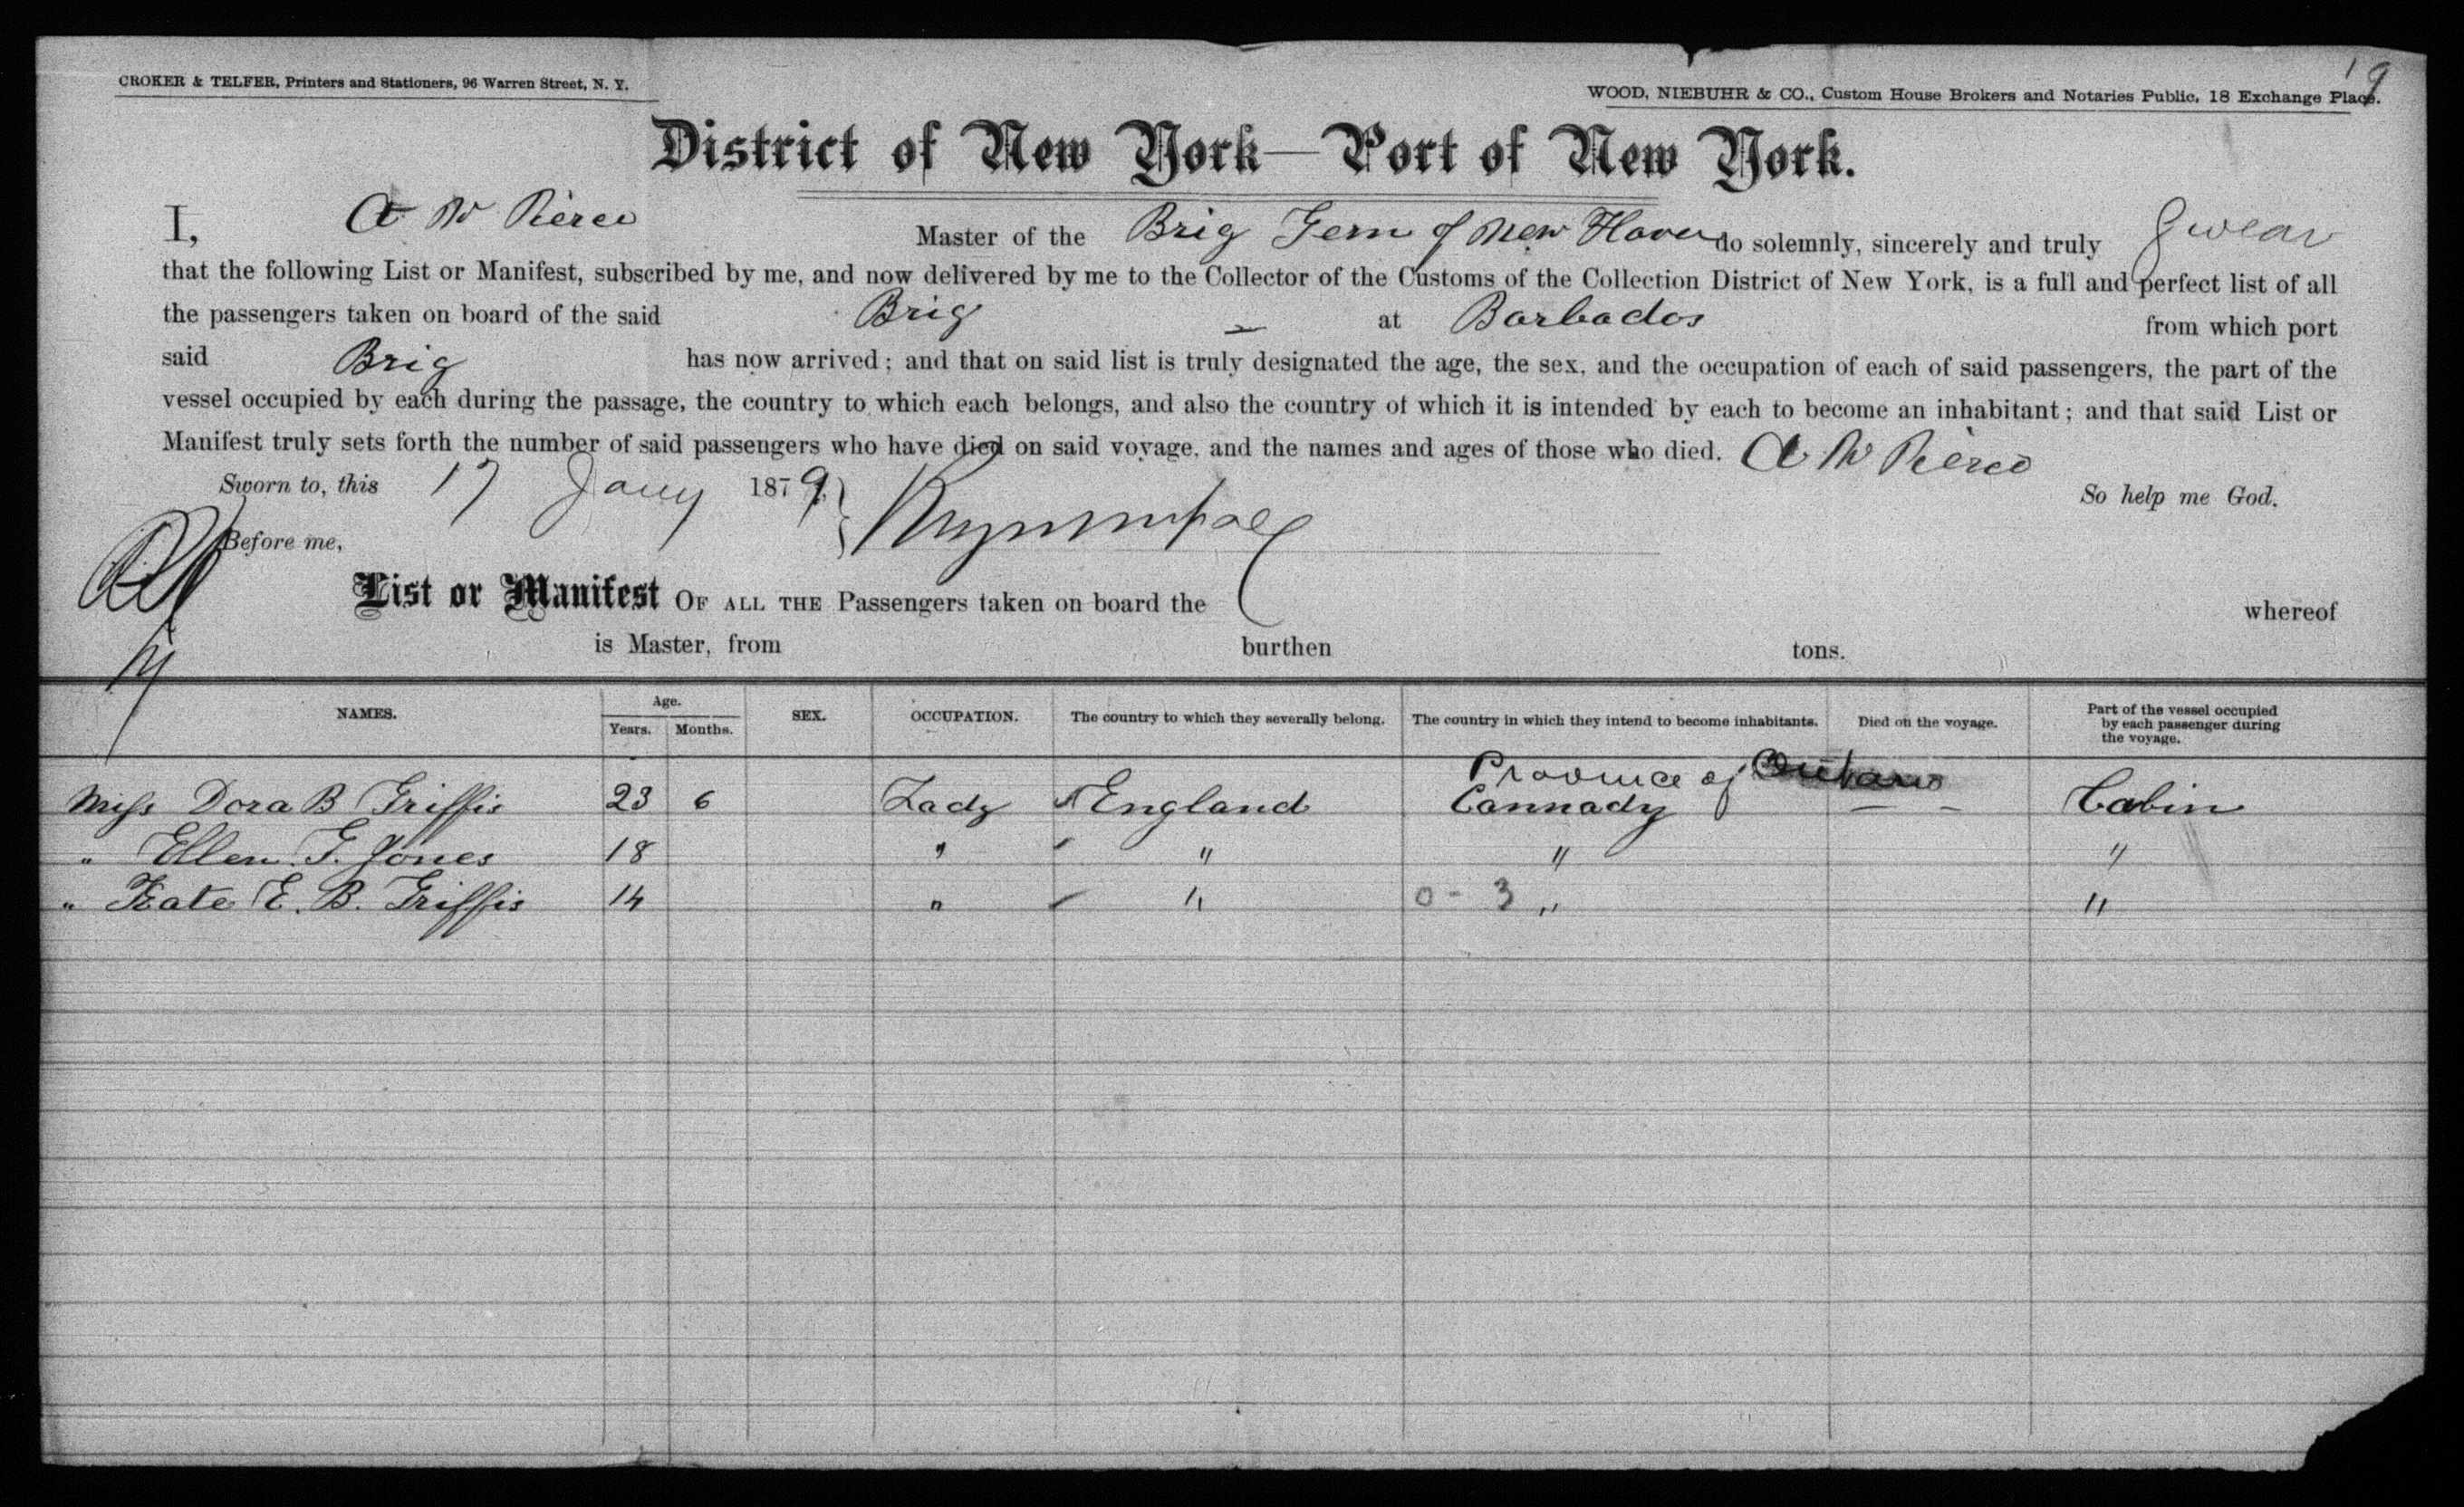 19
CROKER & TELFER, Printers and Stationers, 96 Warren Street, N. Y.
WOOD, NIEBUHR & CO., Custom House Brokers and Notaries Public, 18 Exchange Place.
District of New York—Port of New York.
I, A W Pierce Master of the Brig Gem of New Haven do solemnly, sincerely and truly Swear
that the following List or Manifest, subscribed by me, and now delivered by me to the Collector of the Customs of the Collection District of New York, is a full and perfect list of all
the passengers taken on board of the said Brig at Barbados from which port
said Brig has now arrived; and that on said list is truly designated the age, the sex, and the occupation of each of said passengers, the part of the
vessel occupied by each during the passage, the country to which each belongs, and also the country of which it is intended by each to become an inhabitant; and that said List or
Manifest truly sets forth the number of said passengers who have died on said voyage, and the names and ages of those who died. A W Pierce
Sworn to, this 17 Jany 1879. So help me God.
Before me,
List or Manifest OF ALL THE Passengers taken on board the whereof
is Master, from burthen tons.
NAMES. Age. Years. Months. SEX. OCCUPATION. The country to which they severally belong. The country in which they intend to become inhabitants. Died on the voyage. Part of the vessel occupied by each passenger during the voyage.
Province of Ontario
Miss Dora B Griffis 23 6 Lady England Cannady — — Cabin
" Ellen G. Jones 18 " " " "
" Kate E. B. Griffis 14 " " 0 - 3 " "